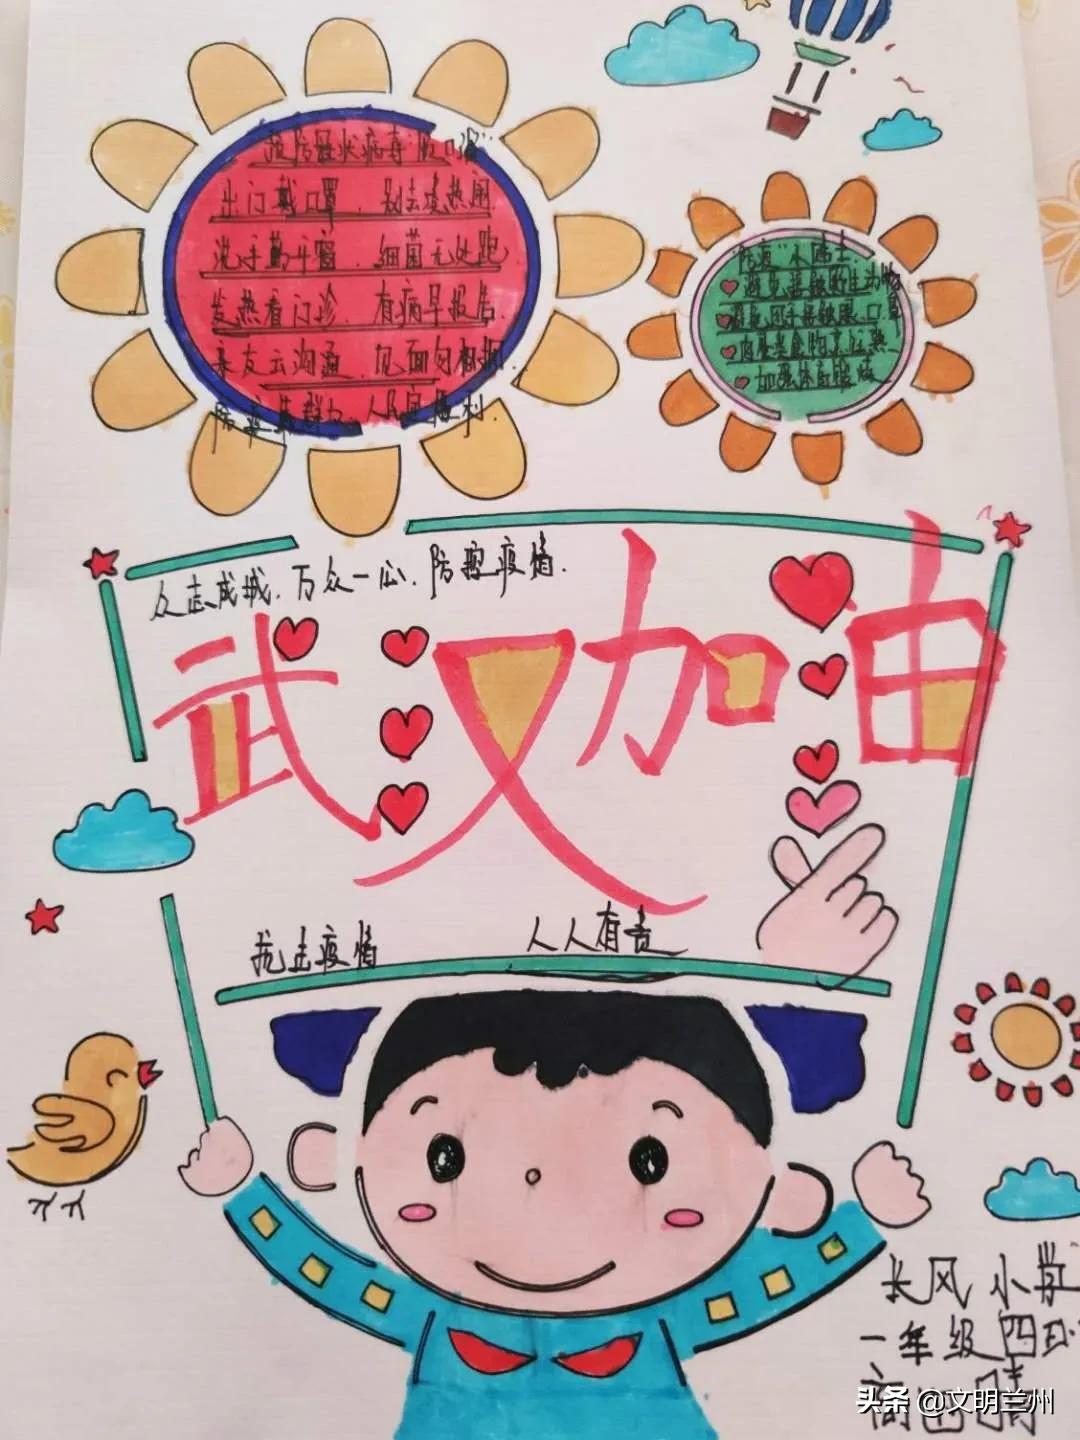 预防冠状病毒"顺口溜"
出门戴口罩，别去凑热闹
洗手勤斗窗，细菌无处跑
发热看门诊，有病早报告.
亲友云沟通，见面勿相拥.
防疫靠群力，人民定胜利.
防疫"小卫士
避免接触野生动物
避免用手接触眼、口、鼻
肉蛋类食物煮任熟
加强体育锻炼
众志成城.万众一心.防控疫情.
武汉加油
抗击疫情 人人有责
长风小学
一年级四班
头条 @文明兰州